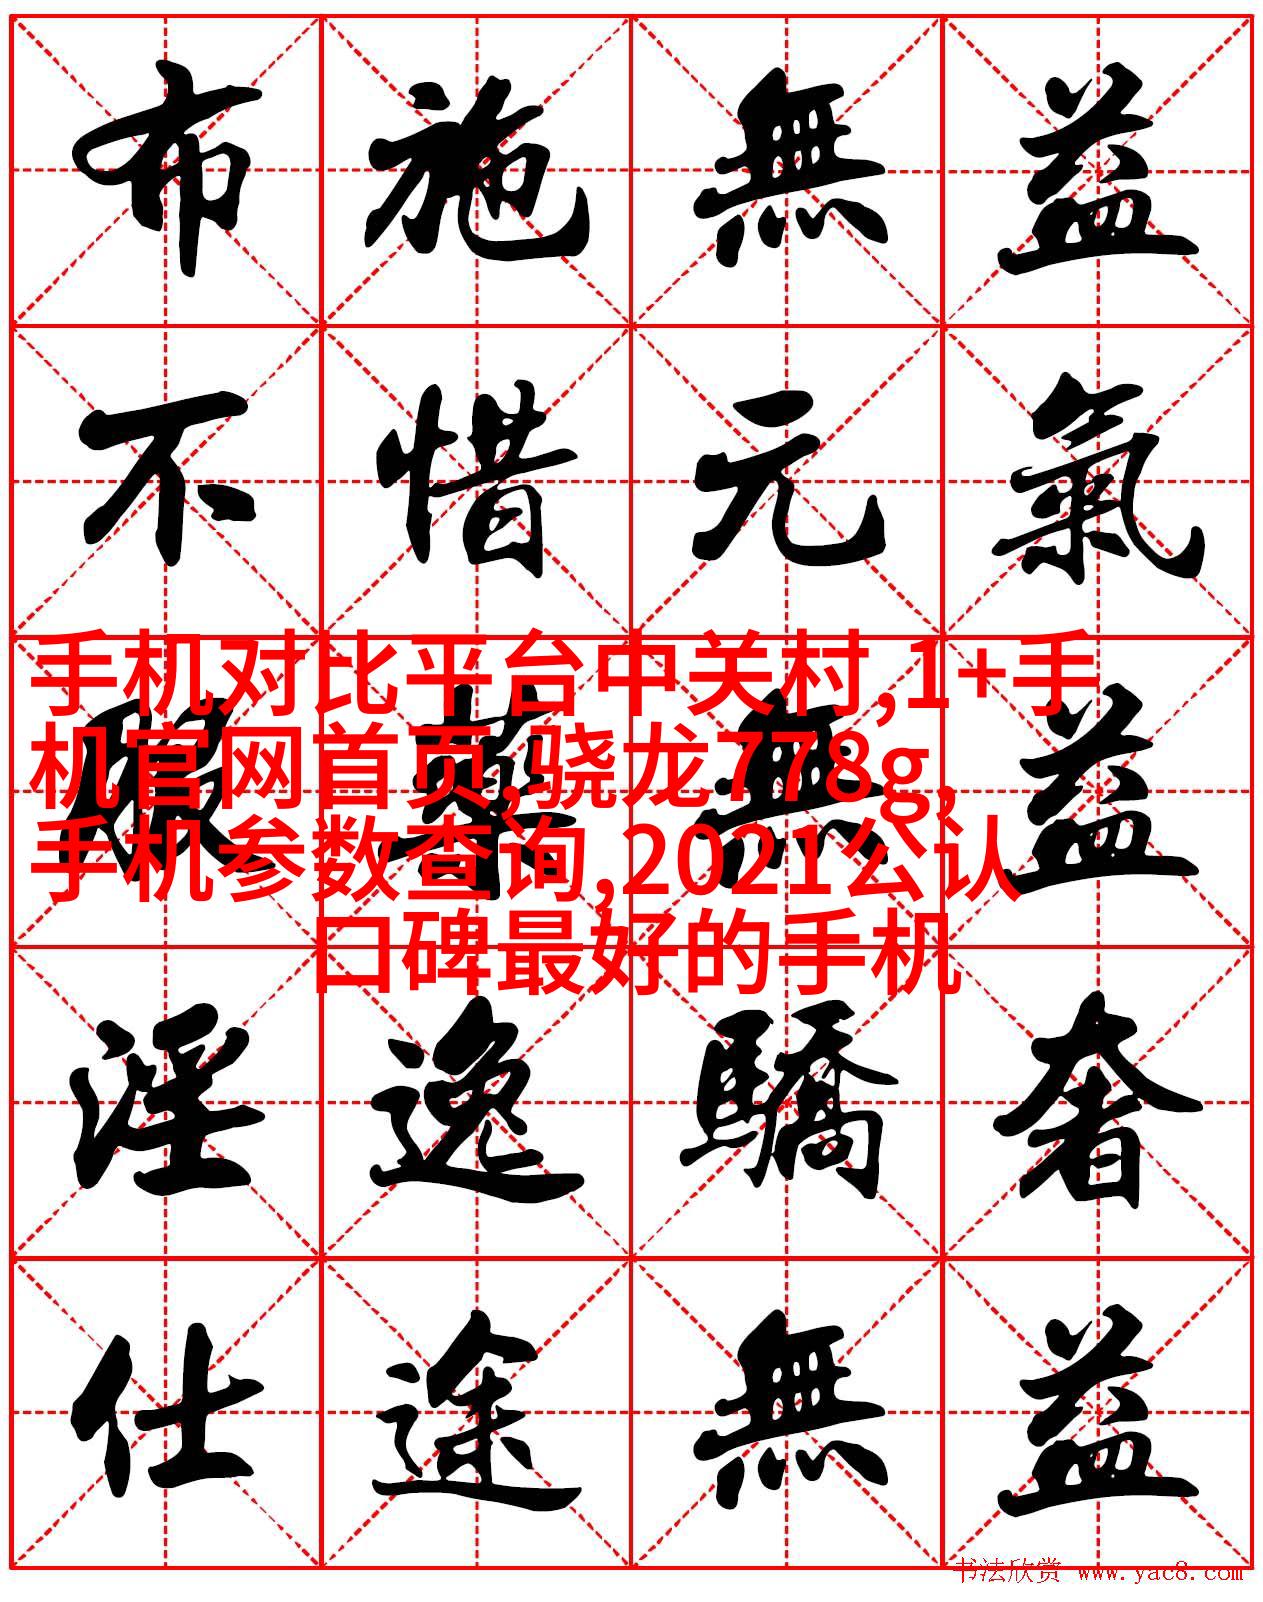 布施無益
不惜元氣
服藥無益
手机对比平台中关村,1+手
机官网首页,骁龙778g,
手机参数查询,2021公认
口碑最好的手机
淫逸驕奢
仕途無益
书法欣赏 www.yac8.com